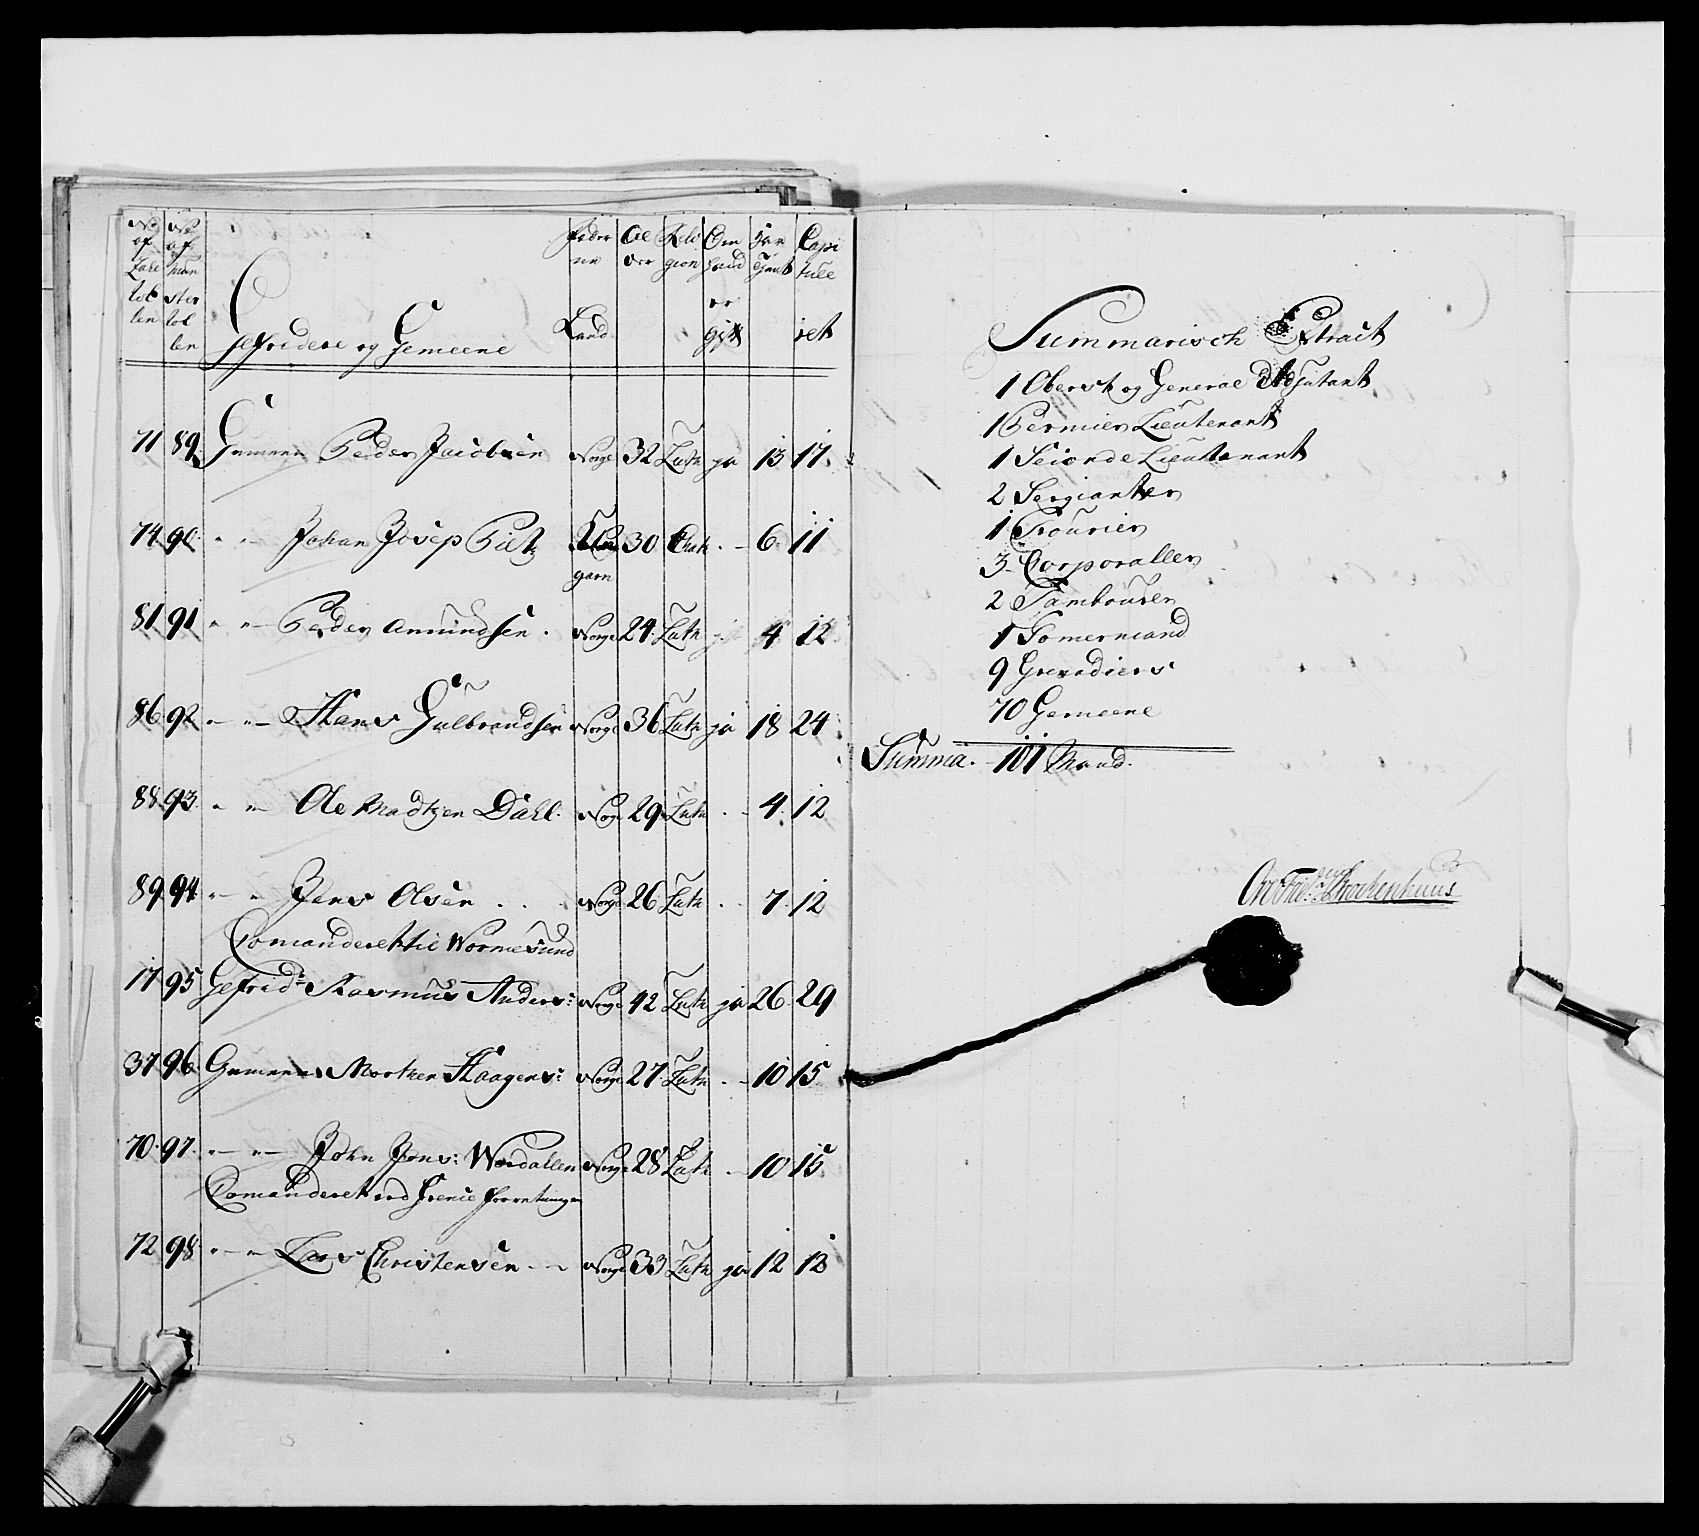 No af Zahl tol len | No af Mun ster tol len | Gefridere og Gemeene | Føder ne Land | Al der | Reli gion | Om hand er gift | Har Tjent | Capi tule ret
71 89 Gemeen Peder Jacobsen Norge 32 Luth ja 13 17
74 90 " " Johan Josep Pilt Ungarn 30 Cath . - 6 11
81 91 " " Peder Amundsen . Norge 24 Luth 4 12
86 92 " " Hans Gulbrandsen Norge 36 Luth ja 18 24
88 93 " " Ole Madtzen Dahl . Norge 29 Luth . - 4 12
89 94 " " Jens Olsen . . Norge 26 Luth . . 7 12
Comanderet til Wormesund
17 95 Gefrid: Rasmus Anders: Norge 42 Luth ja 26 29
37 96 Gemeen Morten Haagens: Norge 27 Luth . - 10 15
70 97 " " John Jons: Wordallen Norge 28 Luth - 10 15
Comanderet ved
72 98 " " Lars Christensen - - Norge 33 Luth ja 12 12
Summarisch Extract
1 Oberst og General Adjutant
1 Permier Lieutenant
1 Seconde Lieutenant
2 Sergianter
1 Fourier
3 Corporaller
2 Tambourer
1 Tømermand
9 Grenadiers
70 Gemeene
Summa . 101 Mand .
Krockenhuus